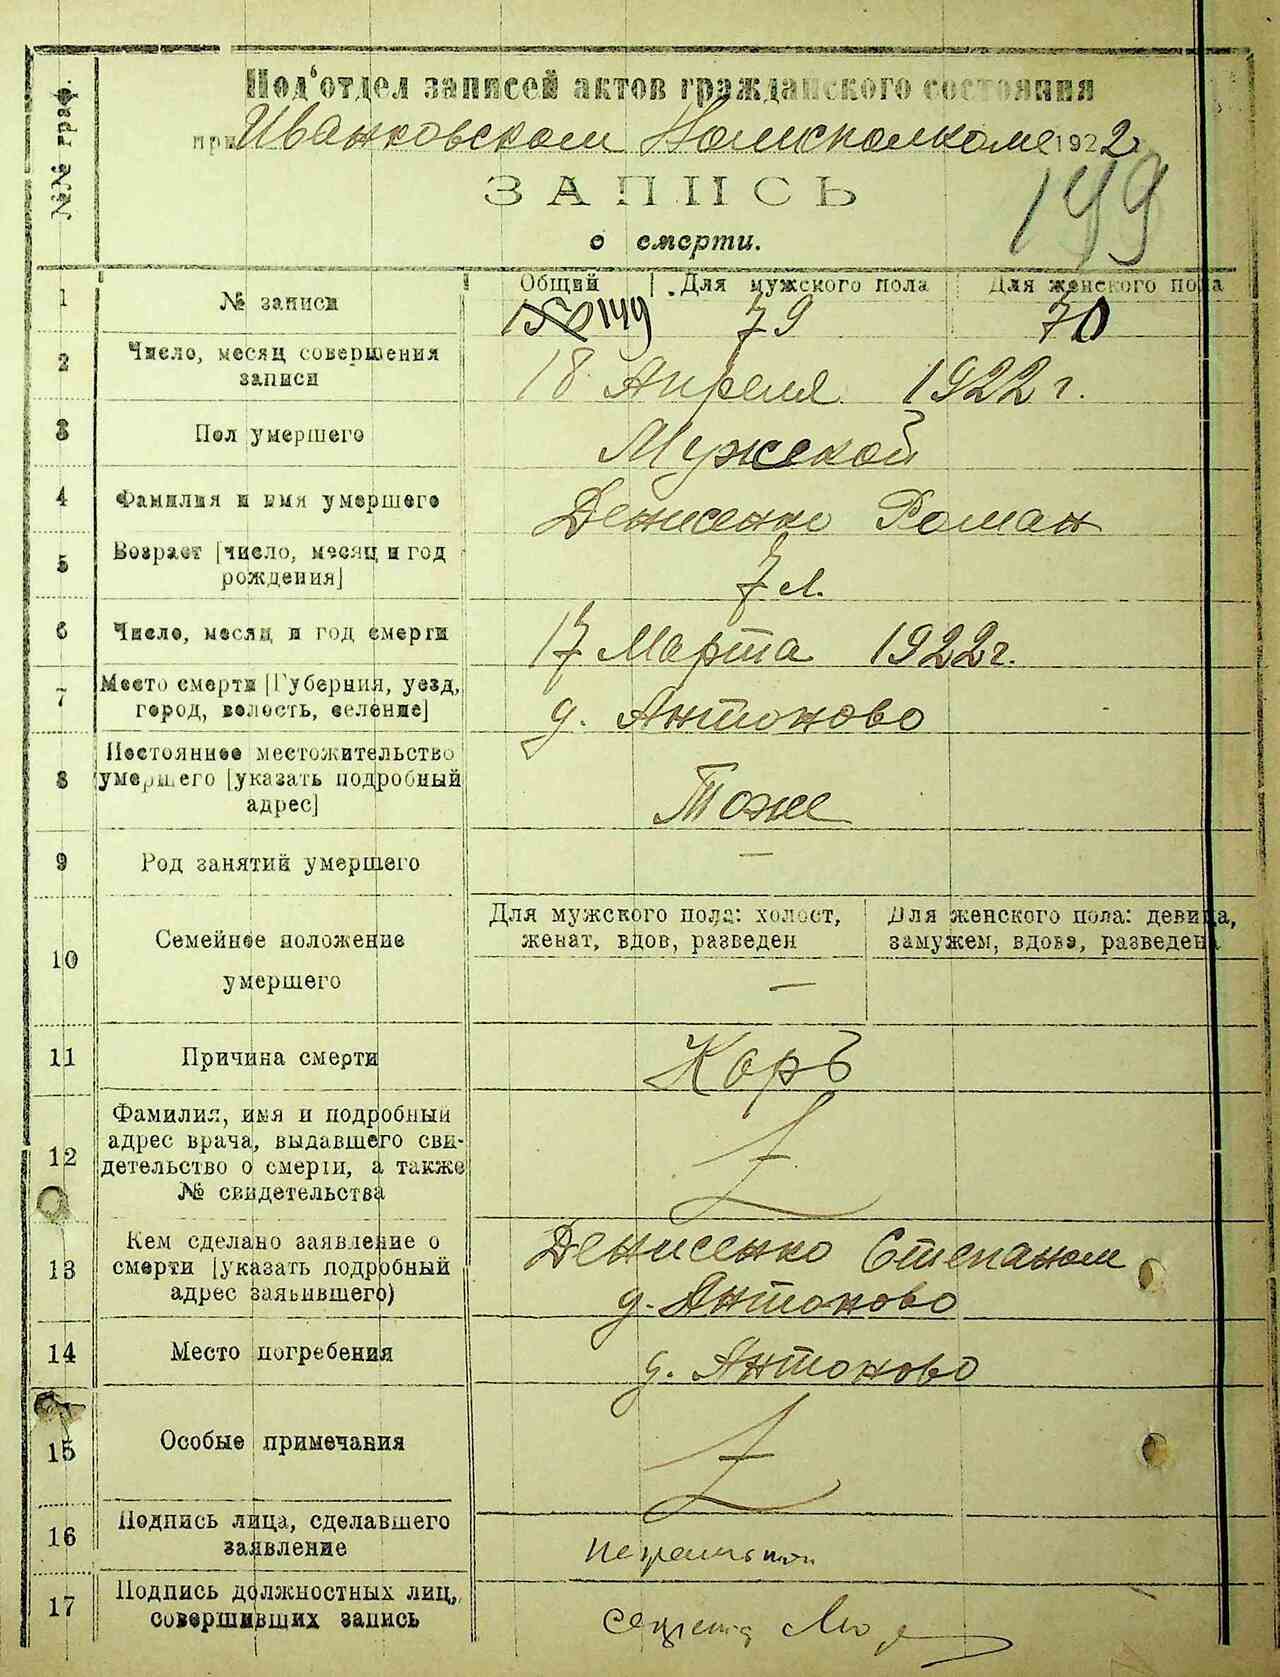 №№ граф.
Под'отдел записей актов гражданского состояния
при Иванковском Волисполкоме 1922
149
ЗАПИСЬ
о смерти.
1
№ записи
Общий
Для мужского пола
Для женского пола
150 149
79
70
2
Число, месяц совершения
записи
18 Апреля 1922 г.
3
Пол умершего
Мужской
4
Фамилия и имя умершего
Денисенко Роман
5
Возраст [число, месяц и год
рождения]
7 л.
6
Число, месяц и год смерти
17 Марта 1922 г.
7
Место смерти [Губерния, уезд,
город, волость, селение]
д. Антоново
8
Постоянное местожительство
умершего [указать подробный
адрес]
Тоже
9
Род занятий умершего
—
10
Семейное положение
умершего
Для мужского пола: холост,
женат, вдов, разведен
Для женского пола: девица,
замужем, вдова, разведена
—
11
Причина смерти
Корь
12
Фамилия, имя и подробный
адрес врача, выдавшего сви-
детельство о смерти, а также
№ свидетельства
13
Кем сделано заявление о
смерти [указать подробный
адрес заявившего)
Денисенко Степаном
д. Антоново
14
Место погребения
д. Антоново
15
Особые примечания
16
Подпись лица, сделавшего
заявление
неграмотен
17
Подпись должностных лиц,
совершивших запись